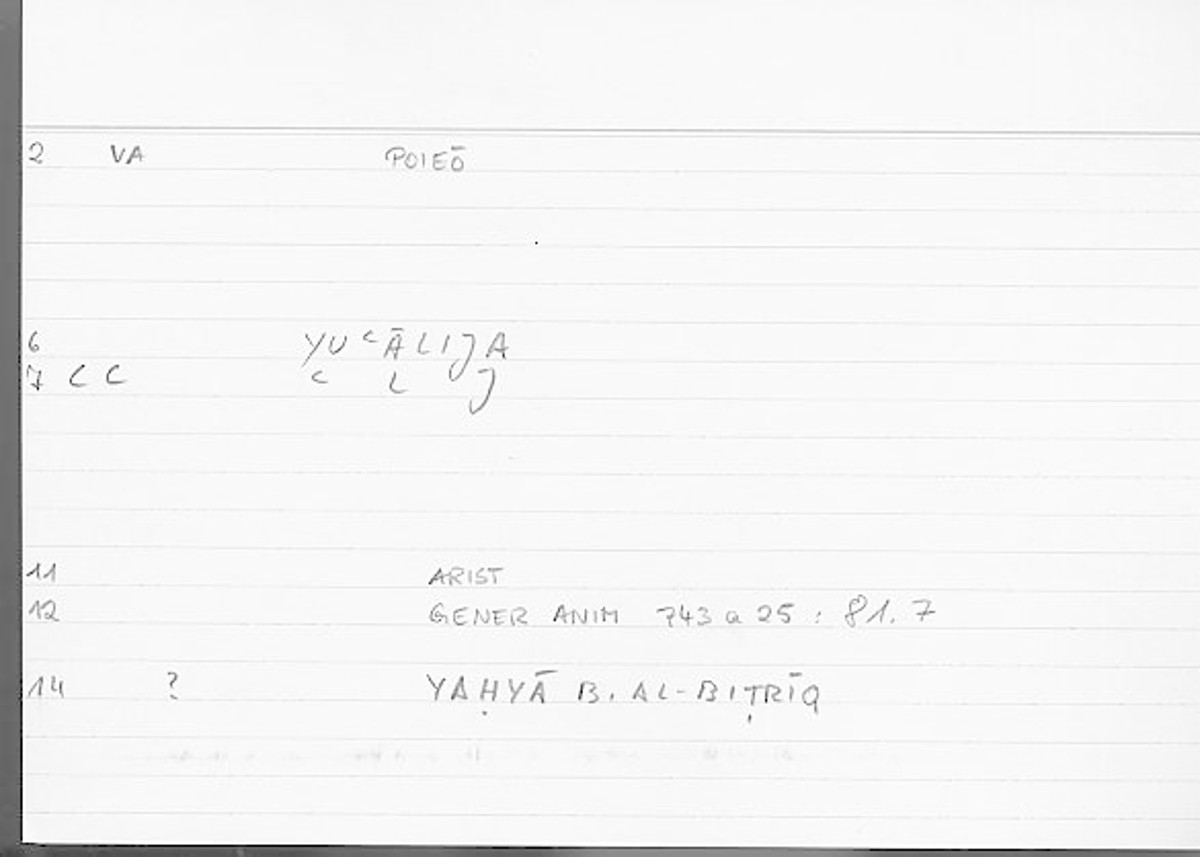 2 VA POIEŌ
6 YUʿĀLIJA
7 C C ʿ L J
11 ARIST
12 GENER ANIM 743 a 25 : 81.7
14 ? YAḤYĀ B. AL-BIṬRĪQ